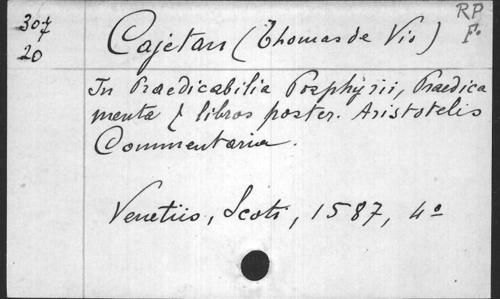 307
20
Cajetan (Thomas de Vio)
RP
F.
In Praedicabilia Porphyrii, Praedica
menta & libros poster. Aristotelis
Commentaria.
Venetiis, Scoti, 1587, 4º